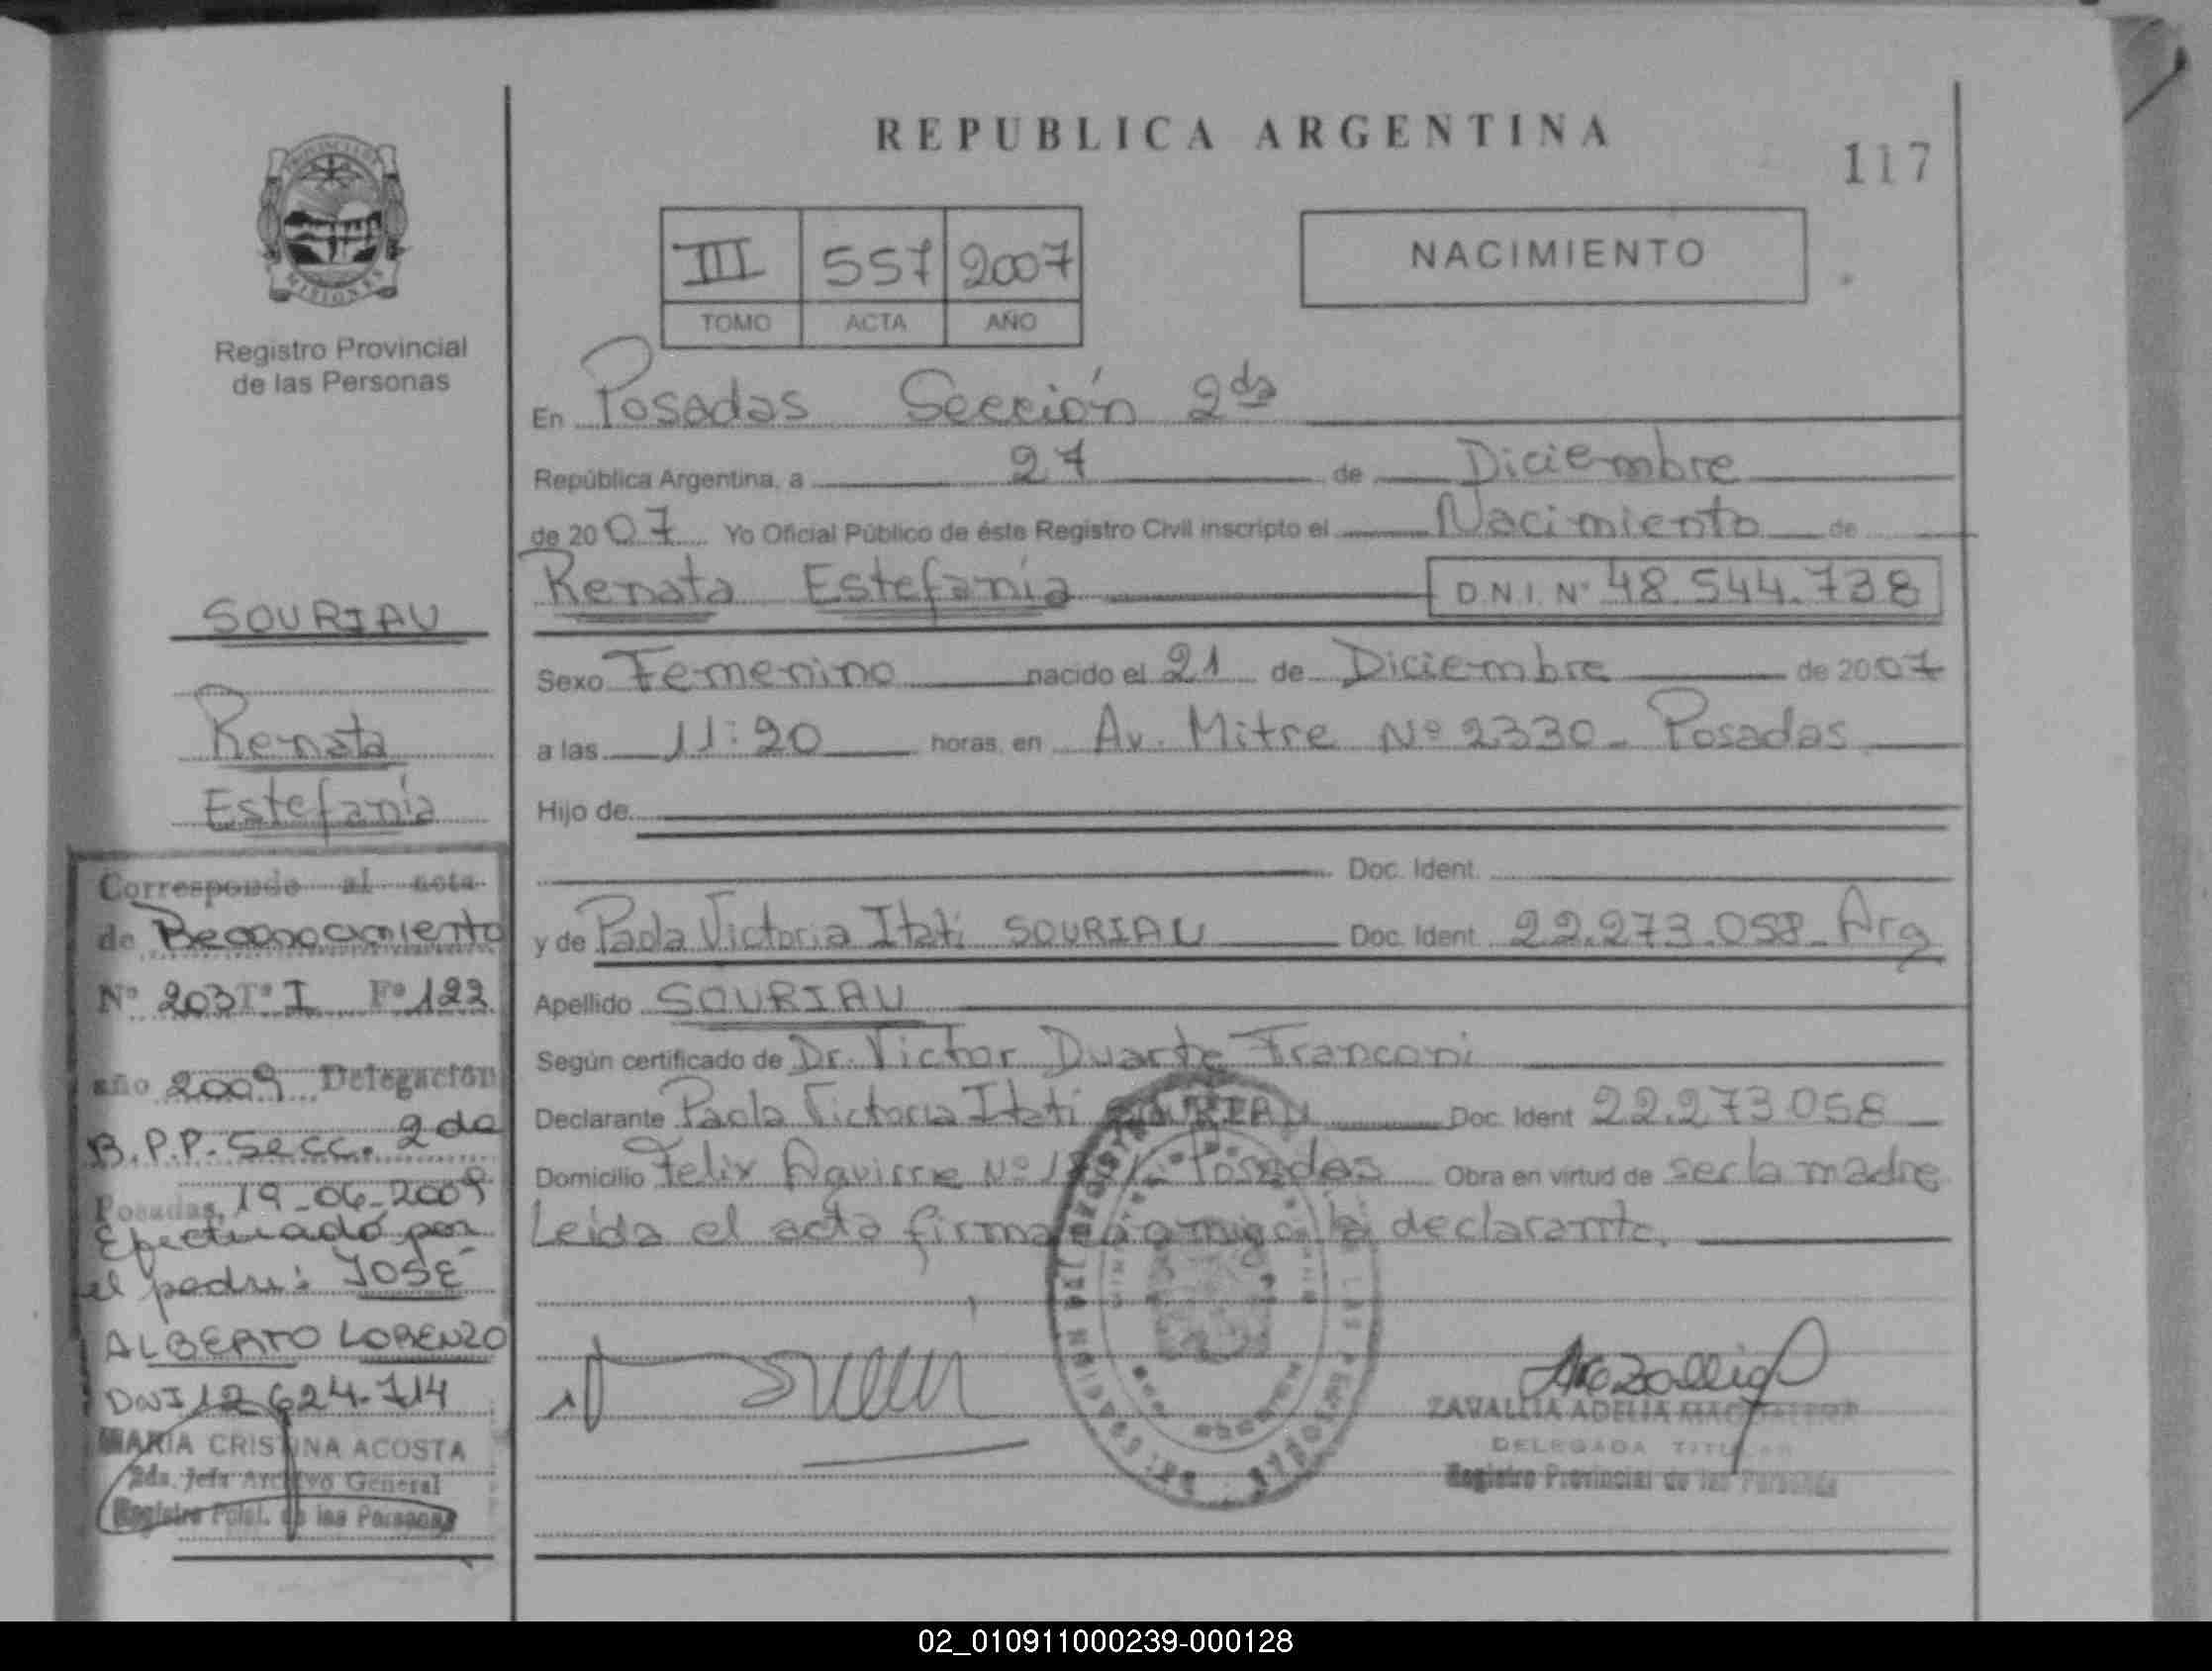 REPUBLICA ARGENTINA
117
PROVINCIA DE
MISIONES
Registro Provincial
de las Personas
III 557 2007
TOMO ACTA AÑO
NACIMIENTO
En Posadas Sección 2da
República Argentina, a 27 de Diciembre
de 2007 Yo Oficial Público de éste Registro Civil inscripto el Nacimiento de
Renata Estefanía D.N.I. Nº 48.544.738
Sexo Femenino nacido el 21 de Diciembre de 2007
a las 11:20 horas, en Av. Mitre Nº 2330 - Posadas
Hijo de
Doc. Ident.
y de Paola Victoria Itatí SOURIAU Doc. Ident. 22.273.058 - Arg
Apellido SOURIAU
Según certificado de Dr. Victor Duarte Franconi
Declarante Paola Victoria Itatí SOURIAU Doc. Ident 22.273.058
Domicilio Felix Aguirre Nº Posadas Obra en virtud de ser la madre
Leída el acta firma conmigo la declarante.
SOURIAU
Renata
Estefanía
Corresponde al acta
de Reconocimiento
Nº 203 Tº I Fº 122
año 2009 Delegación
B.P.P. Secc. 2da
Posadas, 19-06-2009
Efectuado por
el padre: JOSÉ
ALBERTO LORENZO
DNI 12.624.714
MARIA CRISTINA ACOSTA
2da. Jefa Archivo General
Registro Pcial. de las Personas
ZAVALLIA ADELIA
DELEGADA TITULAR
Registro Provincial de las Personas
02_010911000239-000128